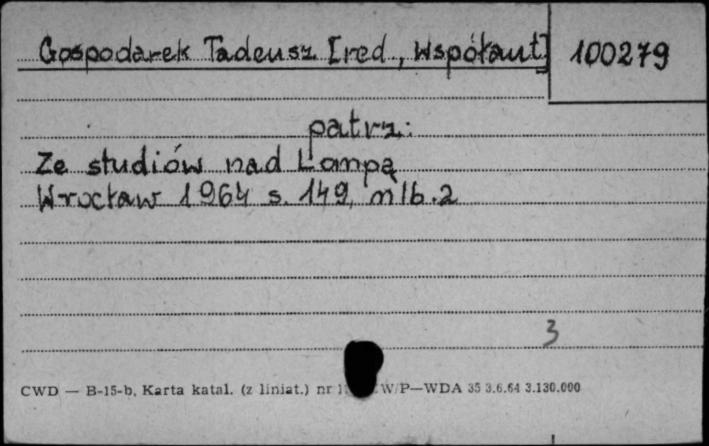 Gospodarek Tadeusz [red., Współaut] 100279
patrz:
Ze studiów nad Lompą
Wrocław 1964 s. 149, nlb. 2
3
CWD — B-15-b, Karta katal. (z liniat.) nr W/P—WDA 35 3.6.64 3.130.000